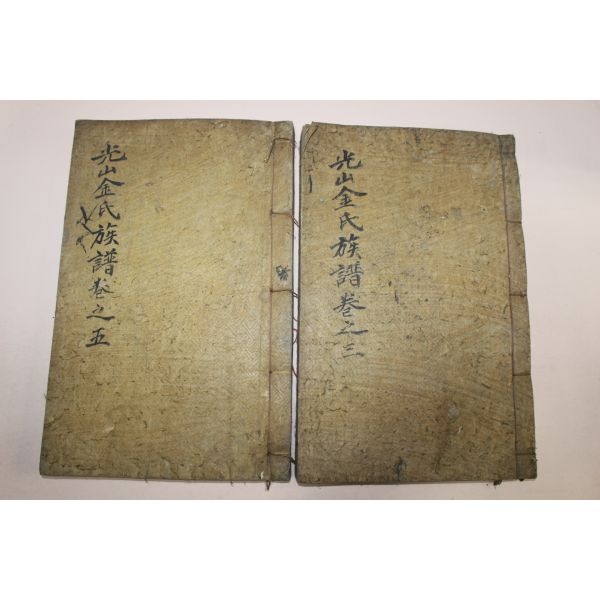 光山金氏族譜卷之三
光山金氏族譜卷之五